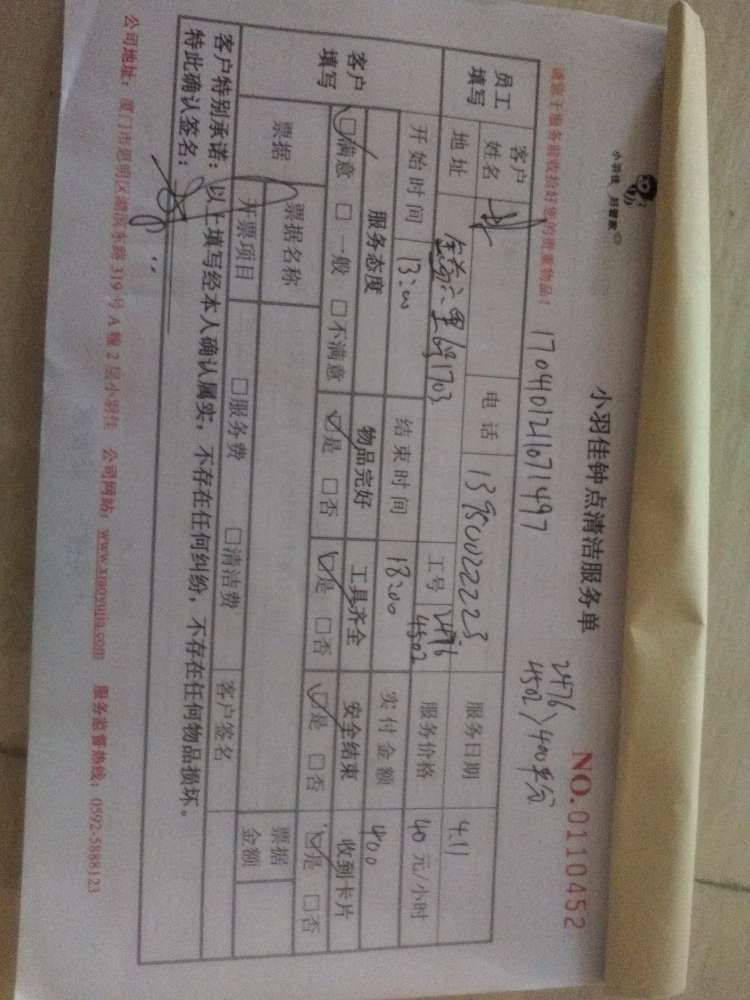 小羽佳 好管家
小羽佳钟点清洁服务单
NO.0110452
请您于服务前收拾好您的贵重物品！
1704101211071497
2476
4502 〉400平分
员工填写
客户姓名
电话 13950022223
服务日期 4.11
地址
1703
工号 2476 4502
服务价格 40 元/小时
开始时间 13:00
结束时间 18:00
实付金额 400
客户填写
服务态度
物品完好
工具齐全
安全结束
收到卡片
☑满意 □一般 □不满意
☑是 □否
☑是 □否
☑是 □否
☑是 □否
票据
票据名称
票据金额
开票项目
□服务费 □清洁费
客户签名
客户特别承诺：以上填写经本人确认属实，不存在任何纠纷，不存在任何物品损坏。
特此确认签名：
公司地址：厦门市思明区湖滨东路319号A幢2层小羽佳 公司网站：www.xiaoyujia.com 服务监督热线：0592-5888123